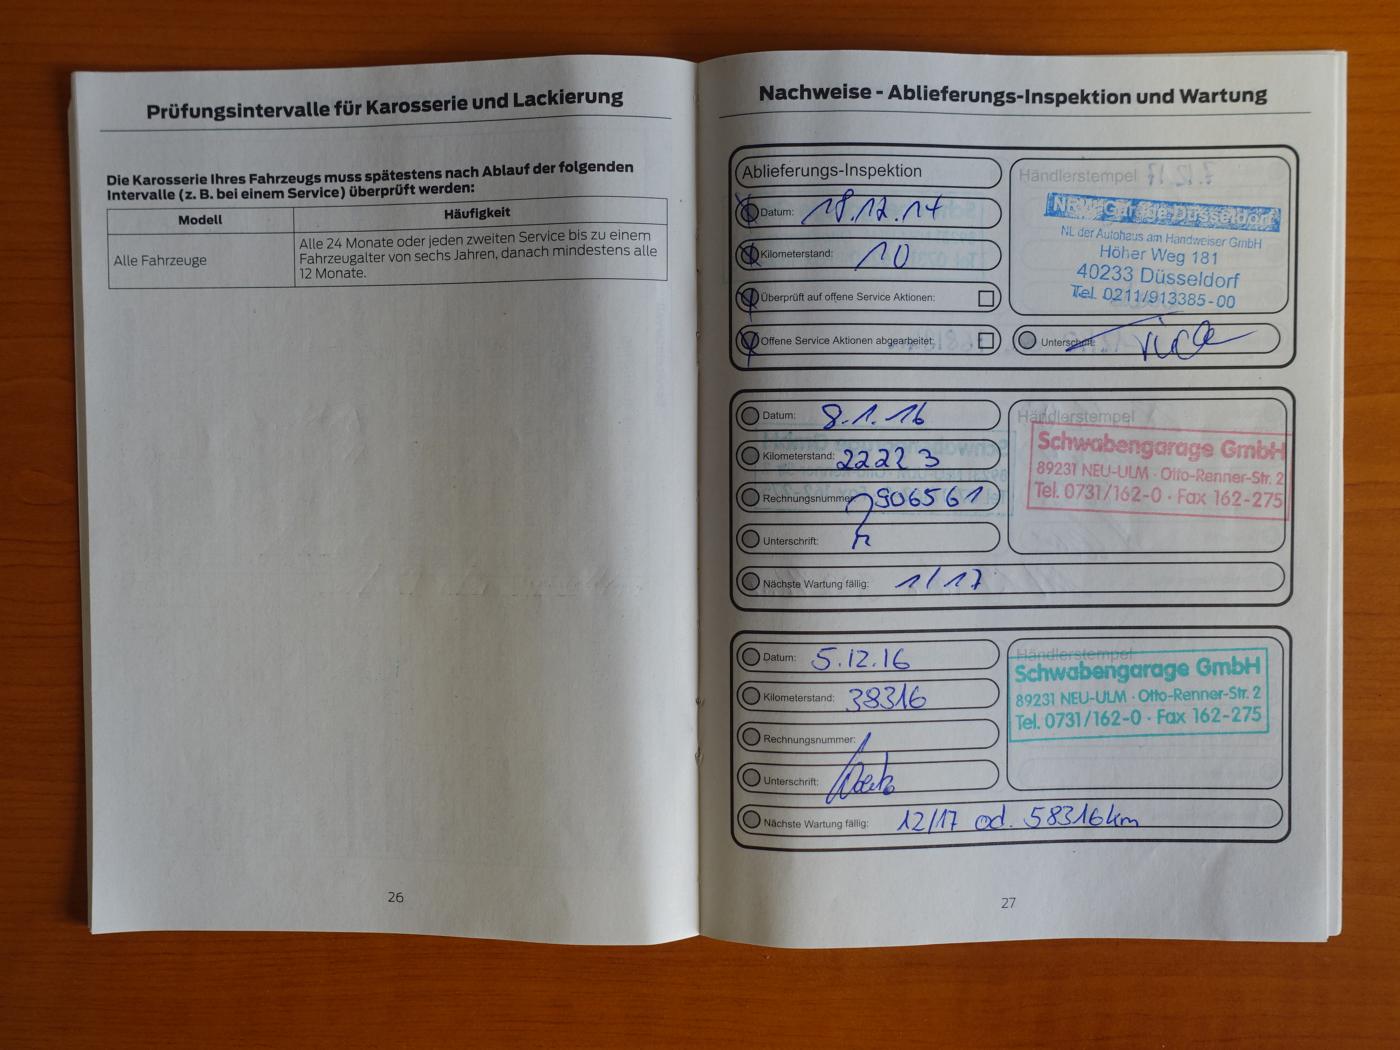 Prüfungsintervalle für Karosserie und Lackierung
Die Karosserie Ihres Fahrzeugs muss spätestens nach Ablauf der folgenden
Intervalle (z. B. bei einem Service) überprüft werden:
Modell Häufigkeit
Alle Fahrzeuge
Alle 24 Monate oder jeden zweiten Service bis zu einem
Fahrzeugalter von sechs Jahren, danach mindestens alle
12 Monate.
26
Nachweise - Ablieferungs-Inspektion und Wartung
Ablieferungs-Inspektion
Datum: 18.12.14
Kilometerstand: 10
Überprüft auf offene Service Aktionen:
Offene Service Aktionen abgearbeitet:
Händlerstempel
NRW-Garage Düsseldorf
NL der Autohaus am Handweiser GmbH
Höher Weg 181
40233 Düsseldorf
Tel. 0211/913385-00
Unterschrift:
Datum: 8.1.16
Kilometerstand: 22223
Rechnungsnummer: 7906561
Unterschrift:
Nächste Wartung fällig: 1/17
Händlerstempel
Schwabengarage GmbH
89231 NEU-ULM · Otto-Renner-Str. 2
Tel. 0731/162-0 · Fax 162-275
Datum: 5.12.16
Kilometerstand: 38316
Rechnungsnummer:
Unterschrift:
Nächste Wartung fällig: 12/17 od. 58316km
Händlerstempel
Schwabengarage GmbH
89231 NEU-ULM · Otto-Renner-Str. 2
Tel. 0731/162-0 · Fax 162-275
27